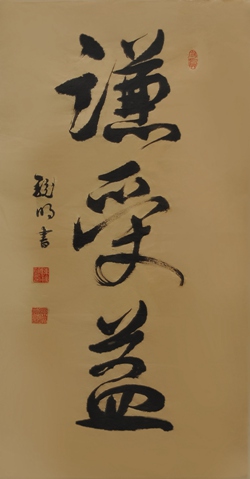 謙受益
龍明書